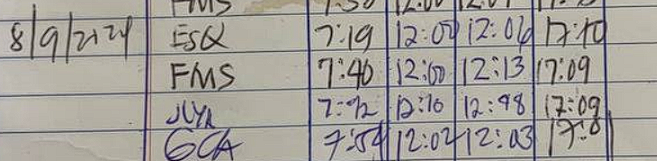 8/9/2024 ESQ 7:19 12:00 12:06 17:10
FMS 7:40 12:00 12:13 17:09
12:10 12:48 17:09
GCA 7:54 12:02 12:03